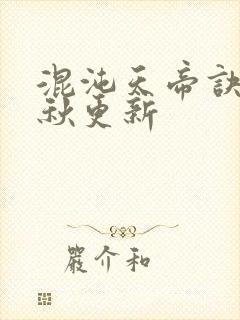 混沌天帝訣
秋更新
嚴介和